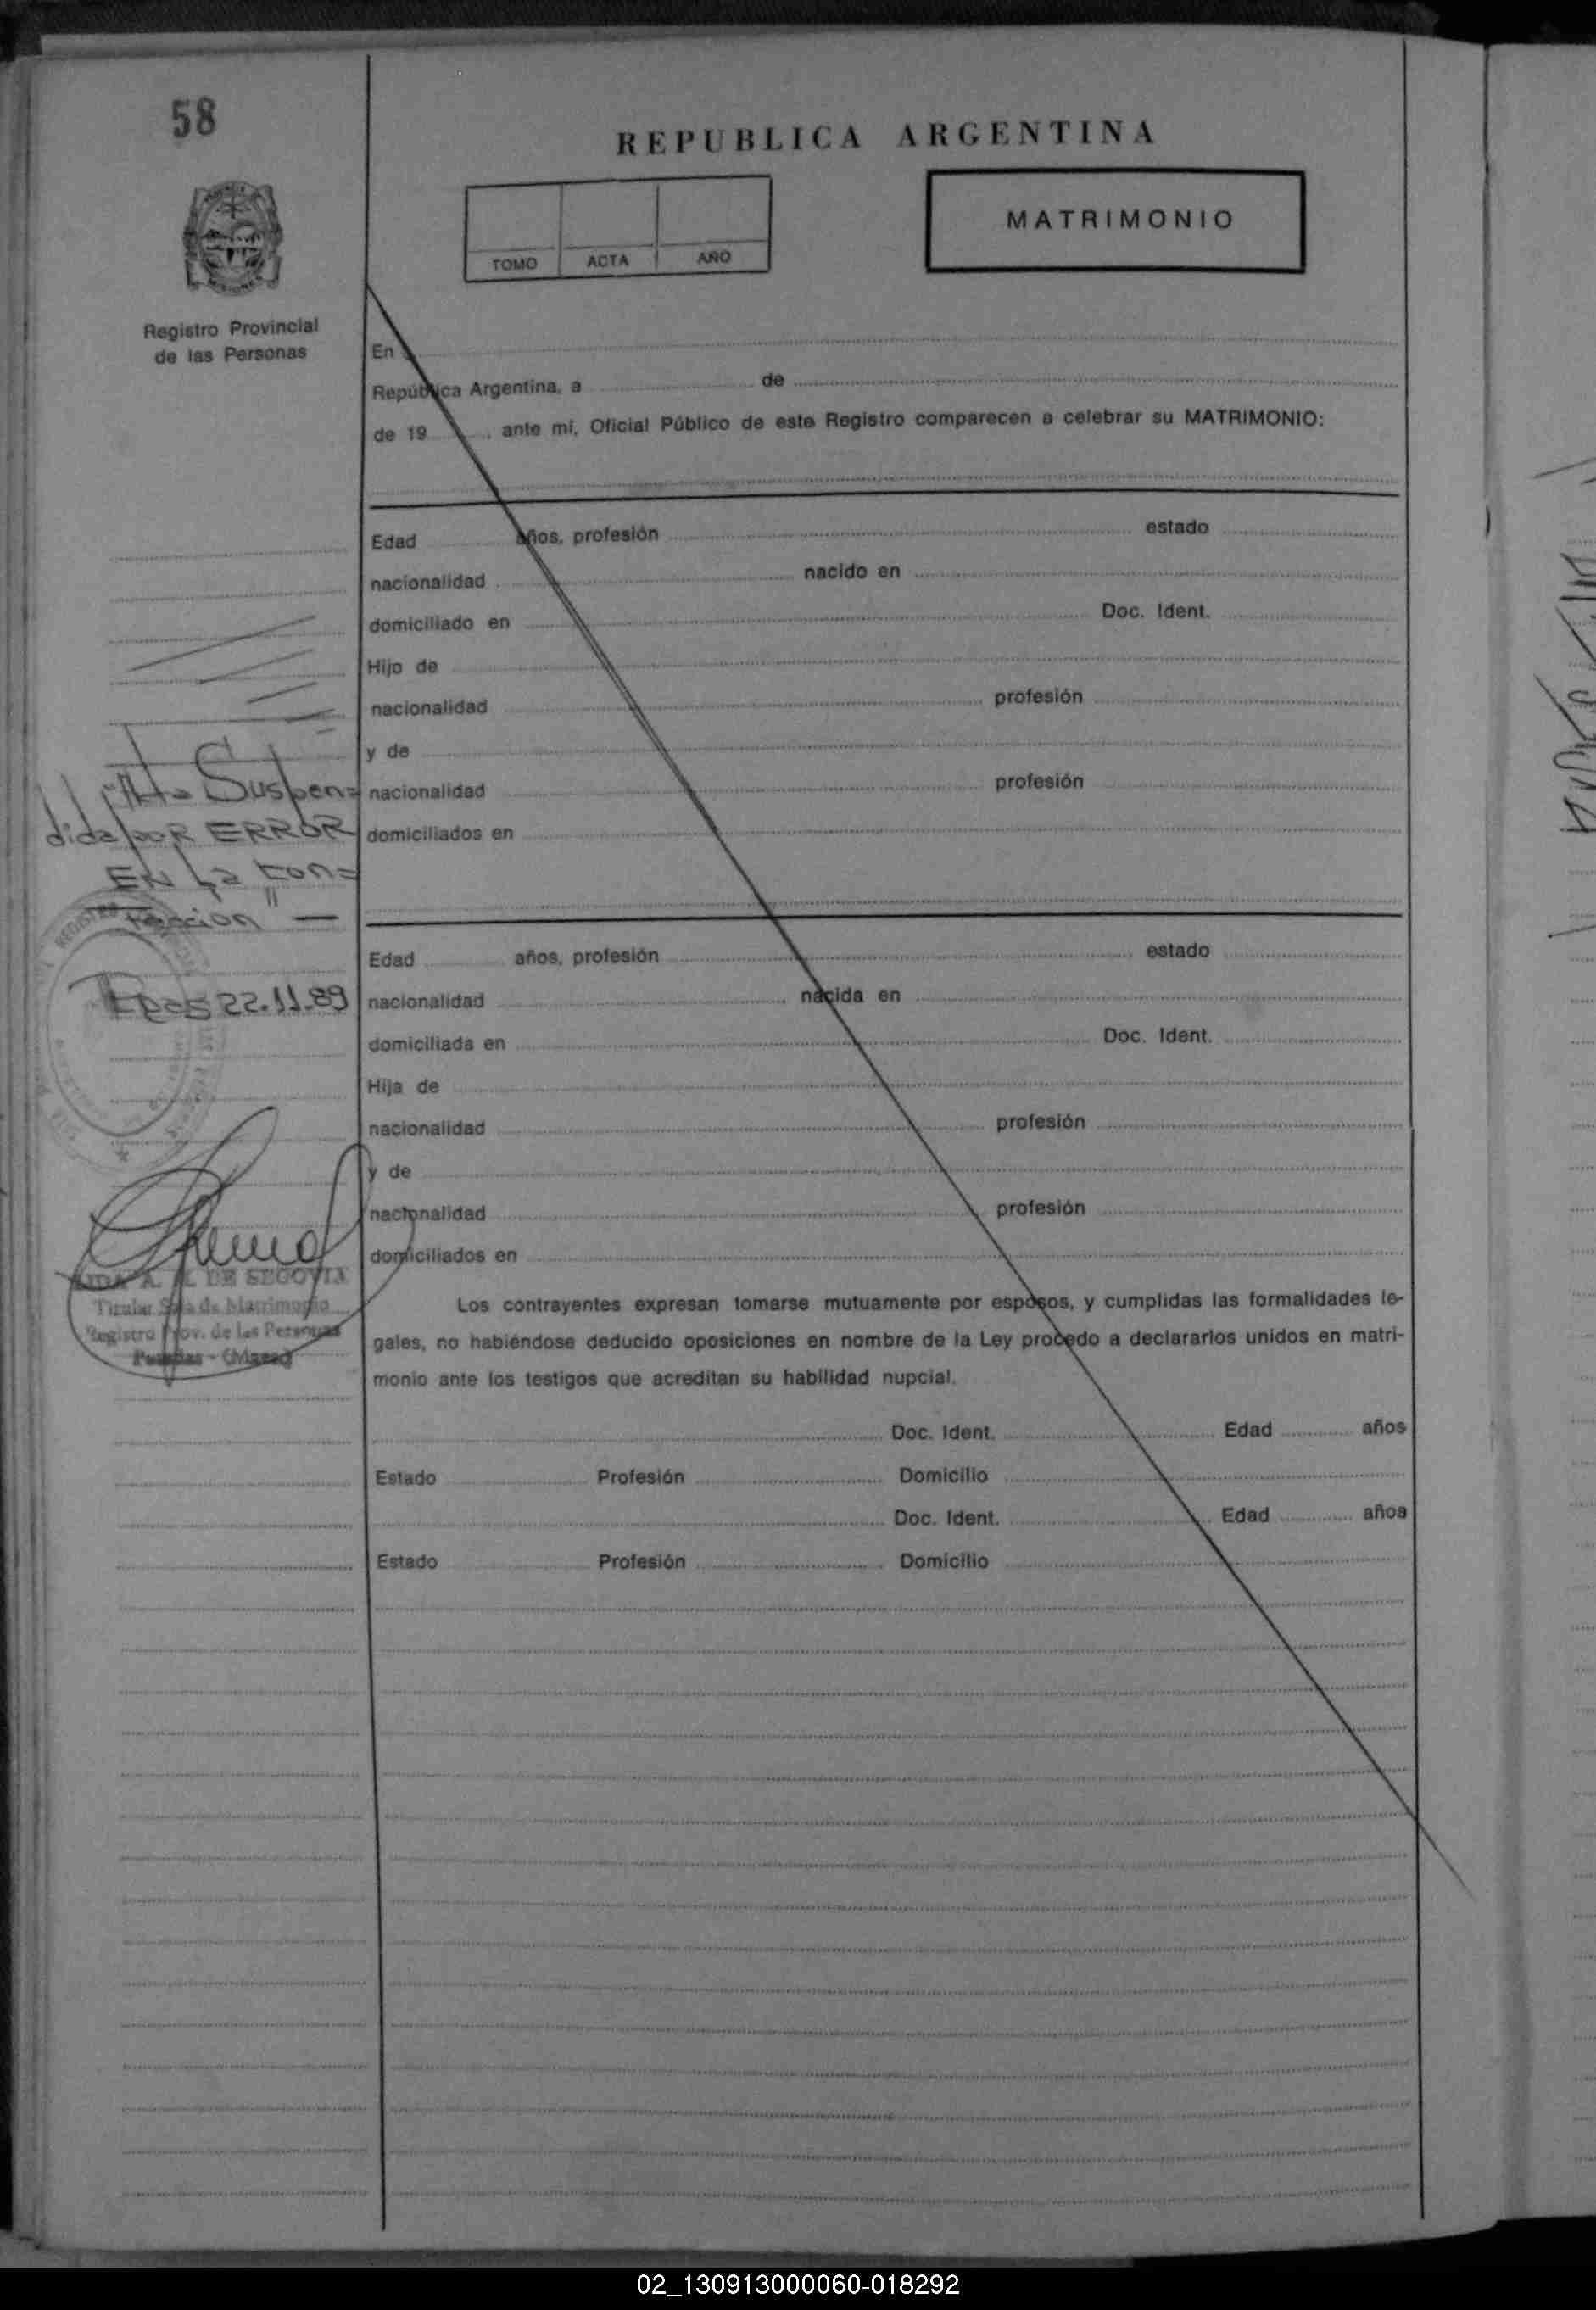 58
REPUBLICA ARGENTINA
MATRIMONIO
TOMO ACTA AÑO
Registro Provincial
de las Personas
En
República Argentina, a de
de 19 , ante mí, Oficial Público de este Registro comparecen a celebrar su MATRIMONIO:
Edad años, profesión estado
nacionalidad nacido en
domiciliado en Doc. Ident.
Hijo de
nacionalidad profesión
y de
nacionalidad profesión
domiciliados en
"Acta Suspen=
dida por ERROR
EN La con=
fección" —
Edad años, profesión estado
nacionalidad nacida en
domiciliada en Doc. Ident.
Hija de
nacionalidad profesión
y de
nacionalidad profesión
domiciliados en
Pdas 22.11.89
REGISTRO
A. DE SEGOVIA
Titular Sala de Matrimonio
Registro Prov. de las Personas
Posadas - (Mnes)
Los contrayentes expresan tomarse mutuamente por esposos, y cumplidas las formalidades le-
gales, no habiéndose deducido oposiciones en nombre de la Ley procedo a declararlos unidos en matri-
monio ante los testigos que acreditan su habilidad nupcial.
Doc. Ident. Edad años
Estado Profesión Domicilio
Doc. Ident. Edad años
Estado Profesión Domicilio
02_130913000060-018292